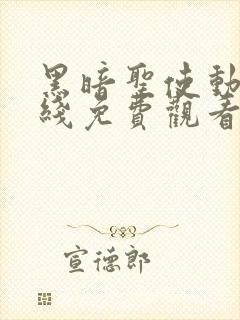 黑暗聖使動
綫免費觀看
宣德郎